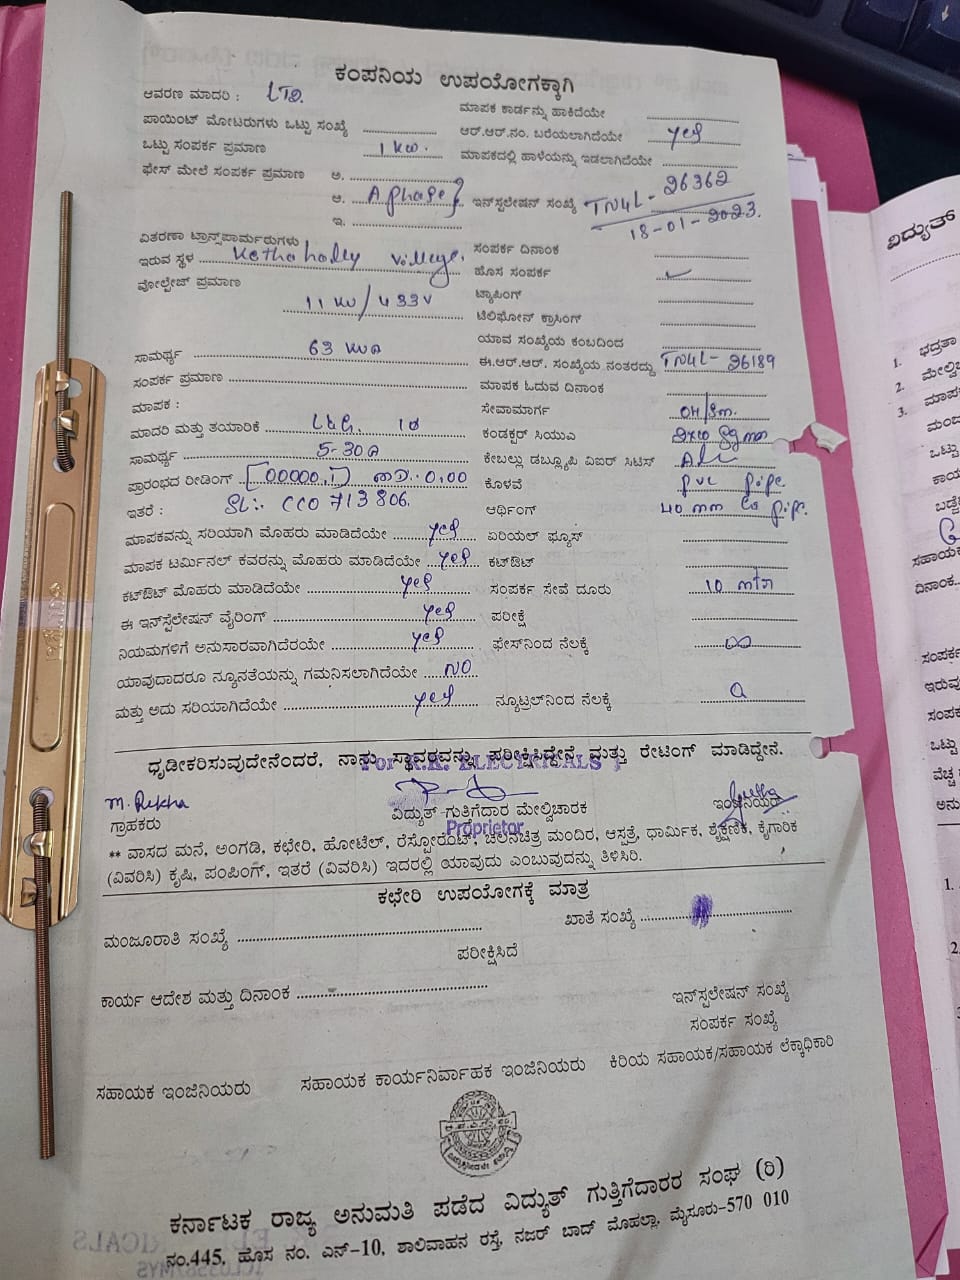 ಕಂಪನಿಯ ಉಪಯೋಗಕ್ಕಾಗಿ
ಆವರಣ ಮಾದರಿ : LTD.
ಮಾಪಕ ಕಾರ್ಡನ್ನು ಹಾಕಿದೆಯೇ
ಪಾಯಿಂಟ್ ಮೋಟರುಗಳು ಒಟ್ಟು ಸಂಖ್ಯೆ
ಆರ್.ಆರ್.ನಂ. ಬರೆಯಲಾಗಿದೆಯೇ yes
ಒಟ್ಟು ಸಂಪರ್ಕ ಪ್ರಮಾಣ 1 KW.
ಮಾಪಕದಲ್ಲಿ ಹಾಳೆಯನ್ನು ಇಡಲಾಗಿದೆಯೇ
ಫೇಸ್ ಮೇಲೆ ಸಂಪರ್ಕ ಪ್ರಮಾಣ ಅ.
ಆ. A phase
ಇ.
ಇನ್‌ಸ್ಟಲೇಷನ್ ಸಂಖ್ಯೆ TN4L - 26362
18-01-2023.
ವಿತರಣಾ ಟ್ರಾನ್ಸ್‌ಫಾರ್ಮರುಗಳು
ಇರುವ ಸ್ಥಳ village.
ಸಂಪರ್ಕ ದಿನಾಂಕ
ಹೊಸ ಸಂಪರ್ಕ
ವೋಲ್ಟೇಜ್ ಪ್ರಮಾಣ
11 KV/433V
ಟ್ಯಾಪಿಂಗ್
ಟೆಲಿಫೋನ್ ಕ್ರಾಸಿಂಗ್
ಯಾವ ಸಂಖ್ಯೆಯ ಕಂಬದಿಂದ
ಸಾಮರ್ಥ್ಯ 63 KVA
ಈ.ಆರ್.ಆರ್. ಸಂಖ್ಯೆಯ ನಂತರದ್ದು TN4L- 26189
ಸಂಪರ್ಕ ಪ್ರಮಾಣ
ಮಾಪಕ ಓದುವ ದಿನಾಂಕ
ಮಾಪಕ :
ಸೇವಾಮಾರ್ಗ OH/Sm.
ಮಾದರಿ ಮತ್ತು ತಯಾರಿಕೆ L&G. 1Ø
ಕಂಡಕ್ಟರ್ ಸಿಯುಎ
ಸಾಮರ್ಥ್ಯ 5-30A
ಕೇಬಲ್ಲು ಡಬ್ಲ್ಯೂಪಿ ವಿಐರ್ ಸಿಟಿಸ್
ಪ್ರಾರಂಭದ ರೀಡಿಂಗ್ 00000.1 0.00
ಕೊಳವೆ PVC pipe
ಇತರೆ : SL:. CCO 713806.
ಆರ್ಥಿಂಗ್ 40 mm pipe.
ಮಾಪಕವನ್ನು ಸರಿಯಾಗಿ ಮೊಹರು ಮಾಡಿದೆಯೇ yes
ಏರಿಯಲ್ ಫ್ಯೂಸ್
ಮಾಪಕ ಟರ್ಮಿನಲ್ ಕವರನ್ನು ಮೊಹರು ಮಾಡಿದೆಯೇ yes
ಕಟ್‌ಔಟ್
ಕಟ್‌ಔಟ್ ಮೊಹರು ಮಾಡಿದೆಯೇ yes
ಸಂಪರ್ಕ ಸೇವೆ ದೂರು 10 mtr
ಈ ಇನ್‌ಸ್ಟಲೇಷನ್ ವೈರಿಂಗ್ yes
ಪರೀಕ್ಷೆ
ನಿಯಮಗಳಿಗೆ ಅನುಸಾರವಾಗಿದೆರಯೇ yes
ಫೇಸ್‌ನಿಂದ ನೆಲಕ್ಕೆ ∞
ಯಾವುದಾದರೂ ನ್ಯೂನತೆಯನ್ನು ಗಮನಿಸಲಾಗಿದೆಯೇ NO
ಮತ್ತು ಅದು ಸರಿಯಾಗಿದೆಯೇ yes
ನ್ಯೂಟ್ರಲ್‌ನಿಂದ ನೆಲಕ್ಕೆ
ಧೃಡೀಕರಿಸುವುದೇನೆಂದರೆ, ನಾನು ಸ್ಥಾವರವನ್ನು ಪರೀಕ್ಷಿಸಿದ್ದೇನೆ ಮತ್ತು ರೇಟಿಂಗ್ ಮಾಡಿದ್ದೇನೆ.
For ELECTRICALS
M. Rekha
ಗ್ರಾಹಕರು
ವಿದ್ಯುತ್ ಗುತ್ತಿಗೆದಾರ ಮೇಲ್ವಿಚಾರಕ
ಇಂಜಿನಿಯರ
Proprietor
** ವಾಸದ ಮನೆ, ಅಂಗಡಿ, ಕಛೇರಿ, ಹೋಟೆಲ್, ರೆಸ್ಟೋರೆಂಟ್, ಚಲನಚಿತ್ರ ಮಂದಿರ, ಆಸ್ಪತ್ರೆ, ಧಾರ್ಮಿಕ, ಶೈಕ್ಷಣಿಕ, ಕೈಗಾರಿಕ
(ವಿವರಿಸಿ) ಕೃಷಿ, ಪಂಪಿಂಗ್, ಇತರೆ (ವಿವರಿಸಿ) ಇದರಲ್ಲಿ ಯಾವುದು ಎಂಬುವುದನ್ನು ತಿಳಿಸಿರಿ.
ಕಛೇರಿ ಉಪಯೋಗಕ್ಕೆ ಮಾತ್ರ
ಮಂಜೂರಾತಿ ಸಂಖ್ಯೆ
ಖಾತೆ ಸಂಖ್ಯೆ
ಪರೀಕ್ಷಿಸಿದೆ
ಕಾರ್ಯ ಆದೇಶ ಮತ್ತು ದಿನಾಂಕ
ಇನ್‌ಸ್ಪಲೇಷನ್ ಸಂಖ್ಯೆ
ಸಂಪರ್ಕ ಸಂಖ್ಯೆ
ಸಹಾಯಕ ಇಂಜಿನಿಯರು
ಸಹಾಯಕ ಕಾರ್ಯನಿರ್ವಾಹಕ ಇಂಜಿನಿಯರು
ಕಿರಿಯ ಸಹಾಯಕ/ಸಹಾಯಕ ಲೆಕ್ಕಾಧಿಕಾರಿ
ಕರ್ನಾಟಕ ರಾಜ್ಯ ಅನುಮತಿ ಪಡೆದ ವಿದ್ಯುತ್ ಗುತ್ತಿಗೆದಾರರ ಸಂಘ (ರಿ)
ನಂ.445, ಹೊಸ ನಂ. ಎನ್-10, ಶಾಲಿವಾಹನ ರಸ್ತೆ, ನಜರ್ ಬಾದ್ ಮೊಹಲ್ಲಾ, ಮೈಸೂರು-570 010
ವಿದ್ಯುತ್
1. ಭದ್ರತಾ
2.
3.